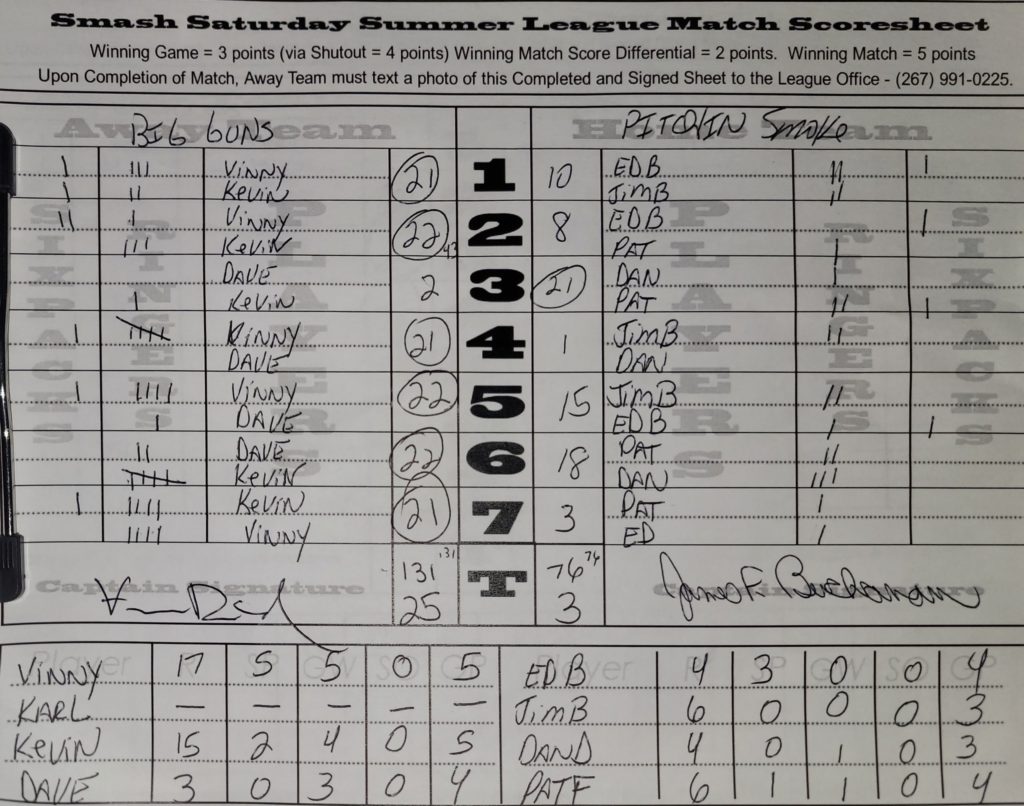 Smash Saturday Summer League Match Scoresheet
Winning Game = 3 points (via Shutout = 4 points) Winning Match Score Differential = 2 points. Winning Match = 5 points
Upon Completion of Match, Away Team must text a photo of this Completed and Signed Sheet to the League Office - (267) 991-0225.
Away Team BIG GUNS Home Team PITCHIN SMOKE
SIXPACKS RINGERS PLAYERS PLAYERS RINGERS SIXPACKS
I III VINNY 21 1 10 EDB II I
I II KEVIN JIMB II
II I VINNY 22 2 8 EDB I
III KEVIN 43 PAT I
DAVE 2 3 21 DAN I
I KEVIN PAT II I
I IIIII VINNY 21 4 1 JIMB II
DAVE DAN
I IIII VINNY 22 5 15 JIMB II
I DAVE EDB I I
II DAVE 22 6 18 PAT II
IIIII KEVIN DAN III
I IIII KEVIN 21 7 3 PAT I
IIII VINNY ED I
131 131 T 76 76
Captain Signature 25 3 James F. Buchanan Captain Signature
Player R SP GW SO GP Player R SP GW SO GP
VINNY 17 5 5 0 5 EDB 4 3 0 0 4
KARL — — — — — JIMB 6 0 0 0 3
KEVIN 15 2 4 0 5 DAND 4 0 1 0 3
DAVE 3 0 3 0 4 PATF 6 1 1 0 4